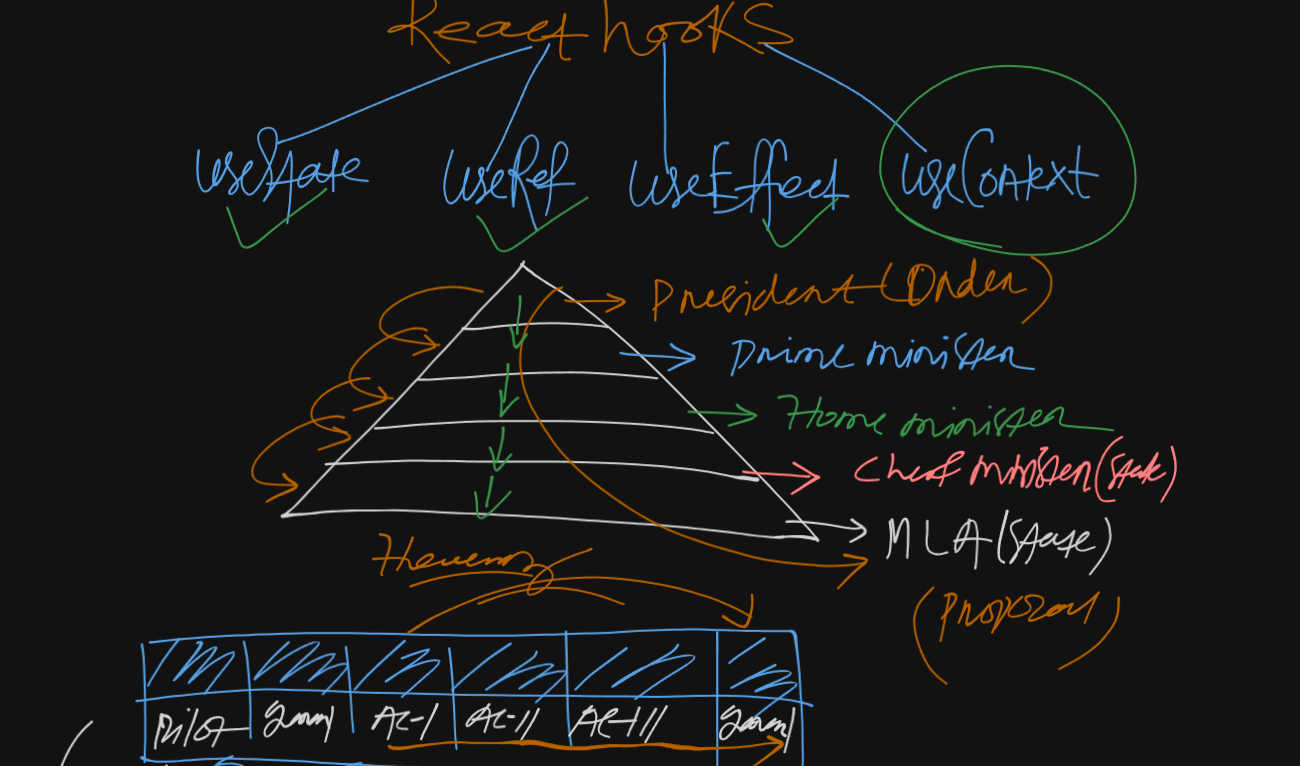 React hooks
useState useRef useEffect useContext
President (Order)
Prime minister
Home minister
Cheaf minister (State)
MLA (State)
(Proposal)
Pilot AC-I AC-II AC-III